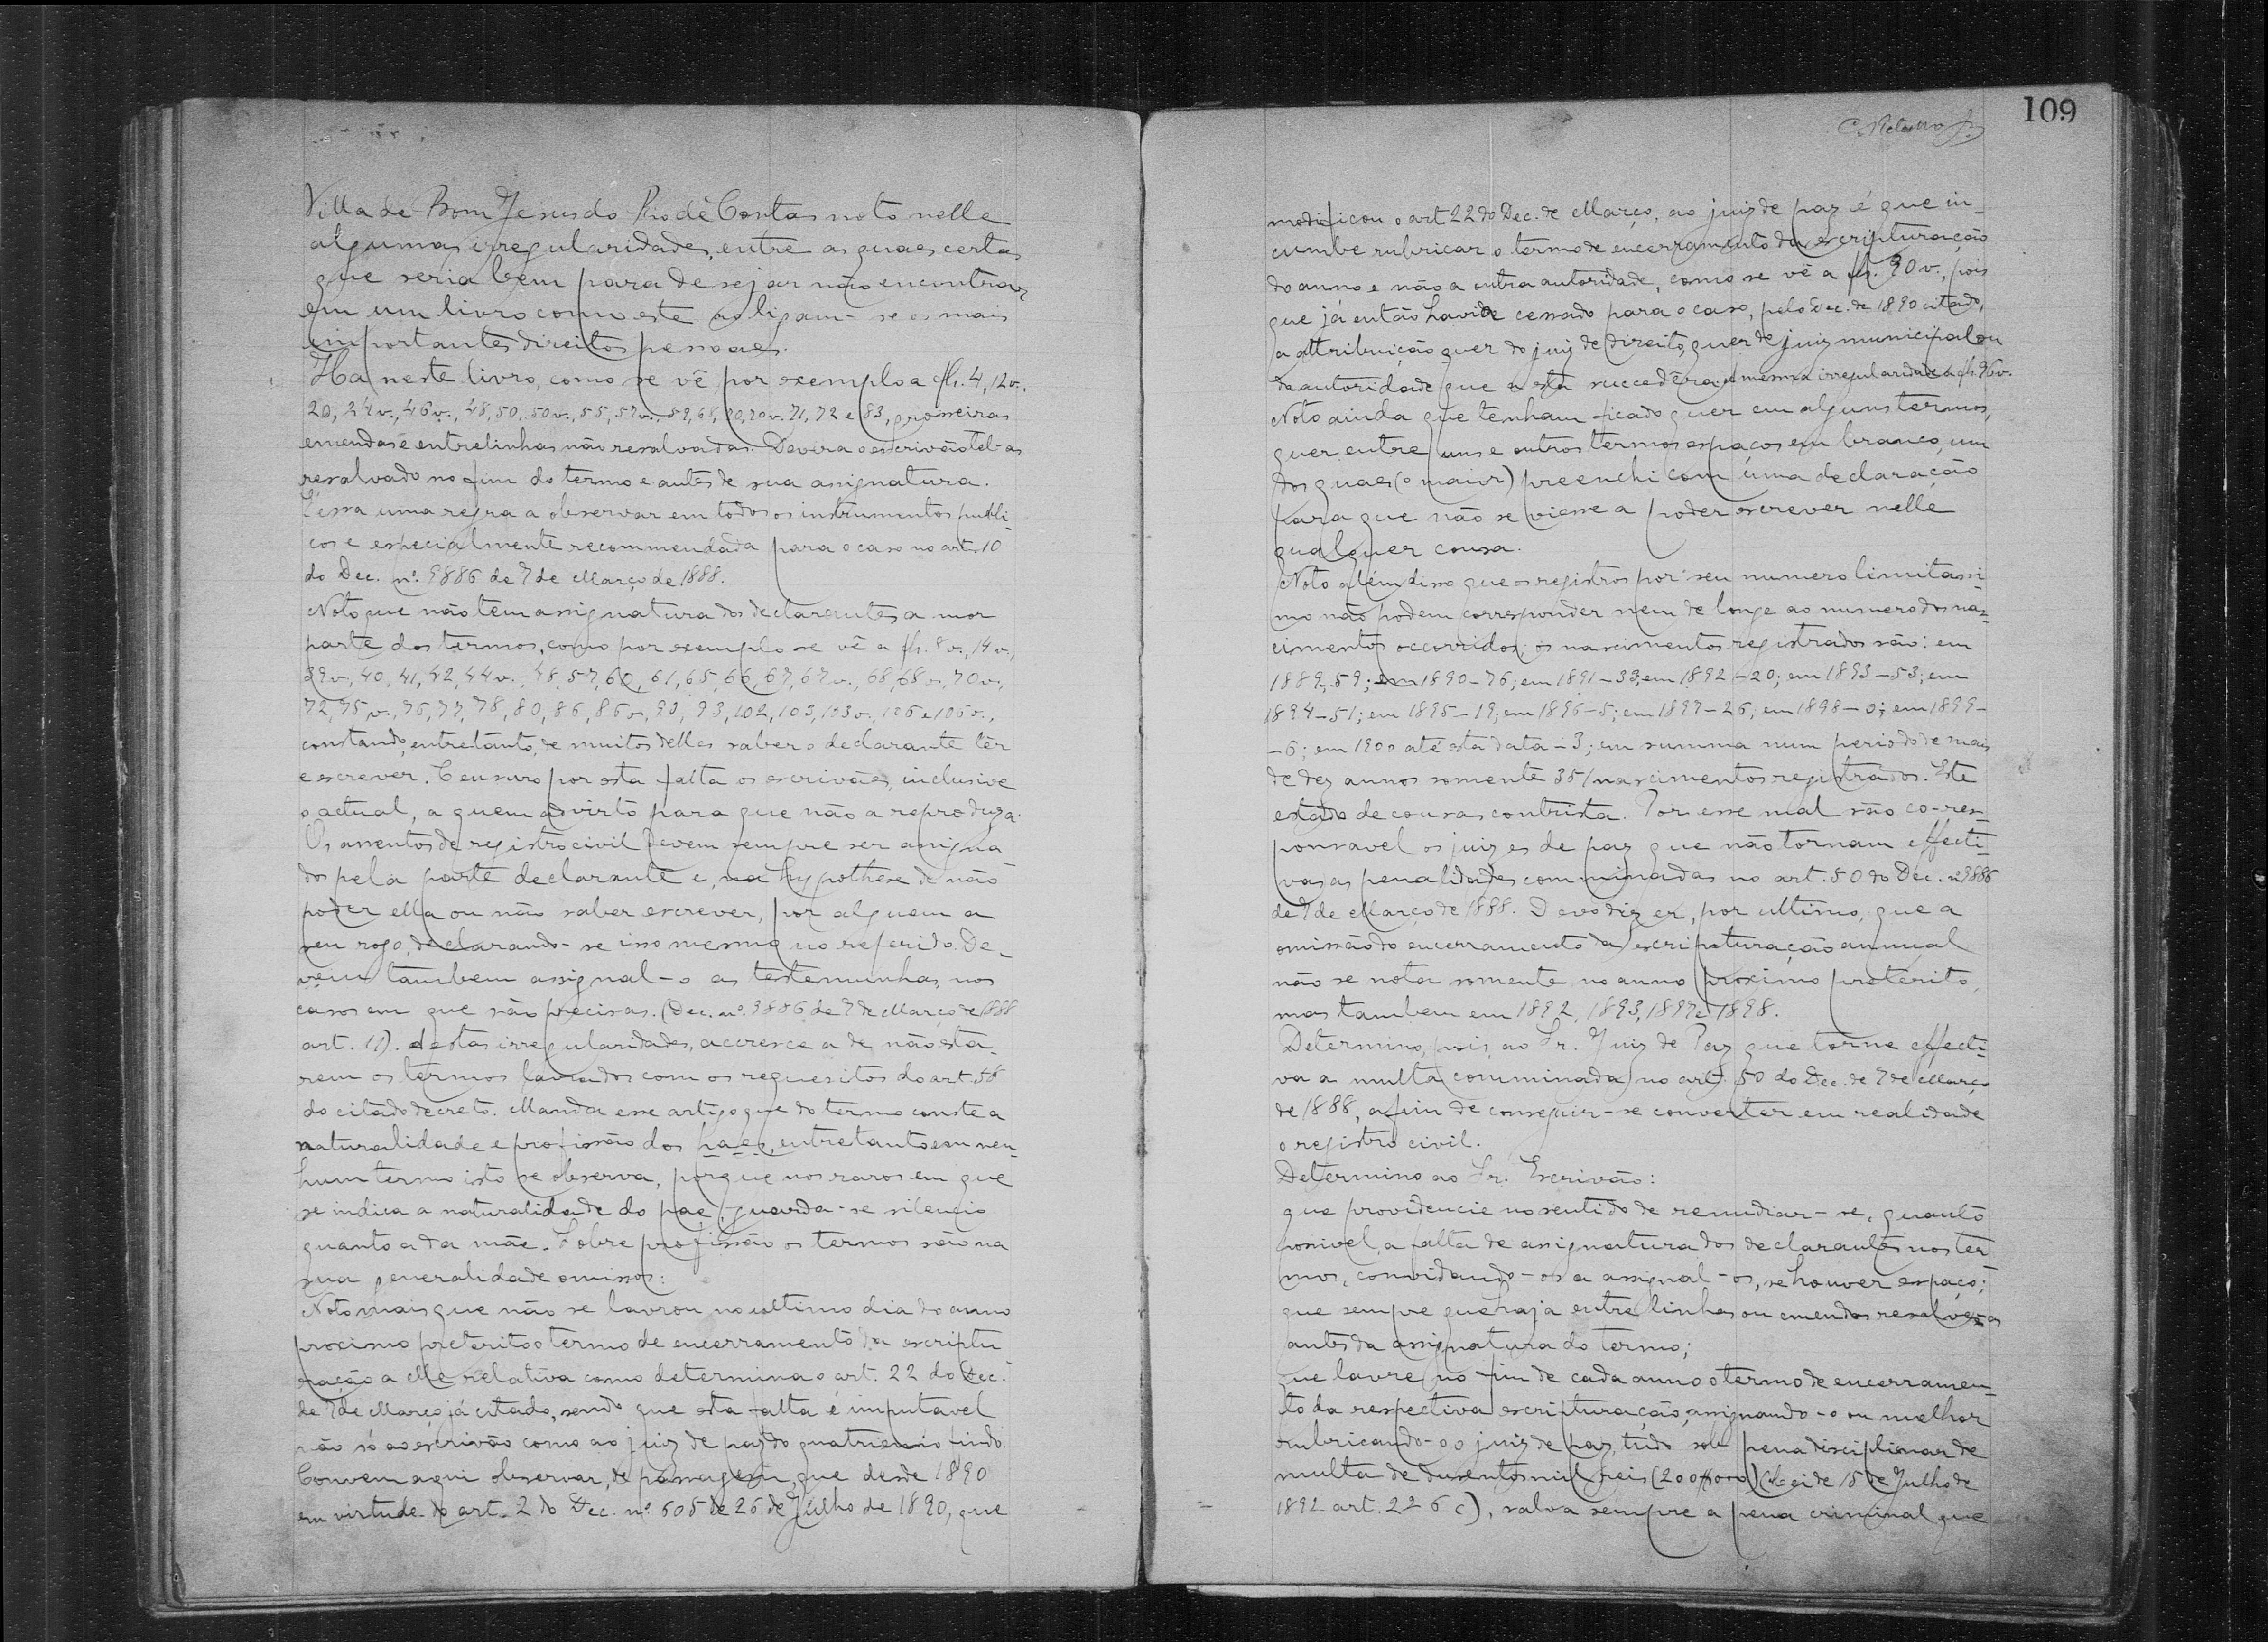 Villa de Bom Jesus do Rio de Contas noto nelle
algumas irregularidades, entre as quaes certas
que seria bem para desejar não encontrar
em um livro como este ao ligam-se os mais
importantes direitos pessoaes.
Ha neste livro, como se vê por exemplo a fls. 4, 12v.,
20, 24v., 46v., 48, 50, 50v., 55, 57v., 59, 68, 70, 70v. 71, 72 e 83, grosseiras
emendas e entrelinhas não resalvadas. Devera o escrivão tel-as
resalvado no fim do termo e antes de sua assignatura.
É essa uma regra a observar em todos os instrumentos publi-
cos e especialmente recommendada para o caso no art. 10
do Dec. nº. 9886 de 7 de Março de 1888.
Noto que não têm assignatura dos declarantes a mor
parte dos termos, como por exemplo se vê a fls. 8v., 14v.,
39v., 40, 41, 42, 44v., 48, 57, 60, 61, 65, 66, 67, 67v., 68, 68v., 70v.,
72, 75v., 76, 77, 78, 80, 86, 86v., 90, 93, 102, 103, 103v., 106 e 106v.,
constando, entretanto, de muitos delles saber o declarante lêr
e escrever. Censuro por esta falta os escrivães, inclusive
o actual, a quem advirto para que não a reproduza.
Os assentos de registro civil devem sempre ser assigna-
dos pela parte declarante e, na hypothese de não
poder ella ou não saber escrever, por alguem a
seu rogo, declarando-se isso mesmo no referido. De-
vem tambem assignal-o as testemunhas, nos
casos em que são precisas. (Dec. nº. 9886 de 7 de Março de 1888
art. 11). A estas irregularidades, accresce a de não esta-
rem os termos lavrados com os requesitos do art. 58
do citado decreto. Manda esse artigo que do termo conste a
naturalidade e profissão dos paes, entretanto em nen-
hum termo isto se observa, porque nos raros em que
se indica a naturalidade do pae, guarda-se silencio
quanto a da mãe. Sobre profissão os termos são na
sua generalidade omissos:
Noto mais que não se lavrou no ultimo dia do anno
proximo preterito o termo de encerramento da escriptu
ração a elle relativa como determina o art. 22 do Dec.
de 7 de Março já citado, sendo que esta falta é imputavel
não só ao escrivão como ao juiz de paz do quatriennio findo.
Convem aqui observar, de passagem, que desde 1890
em virtude do art. 2 do Dec. nº. 605 de 26 de Julho de 1890, que
109
modificou o art 22 do Dec. de Março, ao juiz de paz é que in-
cumbe rubricar o termo de encerramento da escripturação
do anno e não a outra autoridade, como se vê a fls. 90v., pois
que já então havia cessado para o caso, pelo Dec. de 1890 citado,
a attribuição quer do juiz de direito, quer de juiz municipal ou
da autoridade que a esta succedêra; a mesma irregularidade a fls. 96v.
Noto ainda que tenham ficado quer em alguns termos,
quer entre uns e outros termos espaços em branco, um
dos quaes (o maior) preenchi com uma declaração
para que não se viesse a poder escrever nelle
qualquer cousa.
Noto além disso que os registros por seu numero limitassi-
mo não podem corresponder nem de longe ao numero dos nas-
cimentos occorridos; os nascimentos registrados são: em
1889-59; em 1890-76; em 1891-33; em 1892-20; em 1893-53; em
1894-51; em 1895-19; em 1896-5; em 1897-26; em 1898-0; em 1899-
-6; em 1900 até esta data-3; em summa num periodo de mais
de dez annos somente 351 nascimentos registrados. Este
estado de cousas contrista. Por esse mal são co-res-
ponsavel os juizes de paz que não tornam effecti-
vas as penalidades comminadas no art. 50 do Dec. nº 9886
de 7 de Março de 1888. Devo dizer, por ultimo, que a
omissão do encerramento da escripturação annual
não se nota somente no anno proximo preterito,
mas tambem em 1892, 1893, 1897 e 1898.
Determino, pois, ao Sr. Juiz de Paz que torne effecti-
va a multa comminada no art. 50 do Dec. de 7 de Março
de 1888, afim de conseguir-se converter em realidade
o registro civil.
Determino ao Sr. Escrivão:
que providencie no sentido de remediar-se, quanto
possivel, a falta de assignatura dos declarantes nos ter
mos, convidando-os a assignal-os, se houver espaço;
que sempre que haja entrelinhas ou emendas resalve-as
antes da assignatura do termo;
que lavre no fim de cada anno o termo de encerramen-
to da respectiva escripturação, assignando-o ou melhor
rubricando-o o juiz de paz, tudo sob pena disciplinar de
multa de dusentos mil reis (200$000) (Lei de 15 de Julho de
1892 art. 226 c), salva sempre a pena criminal que